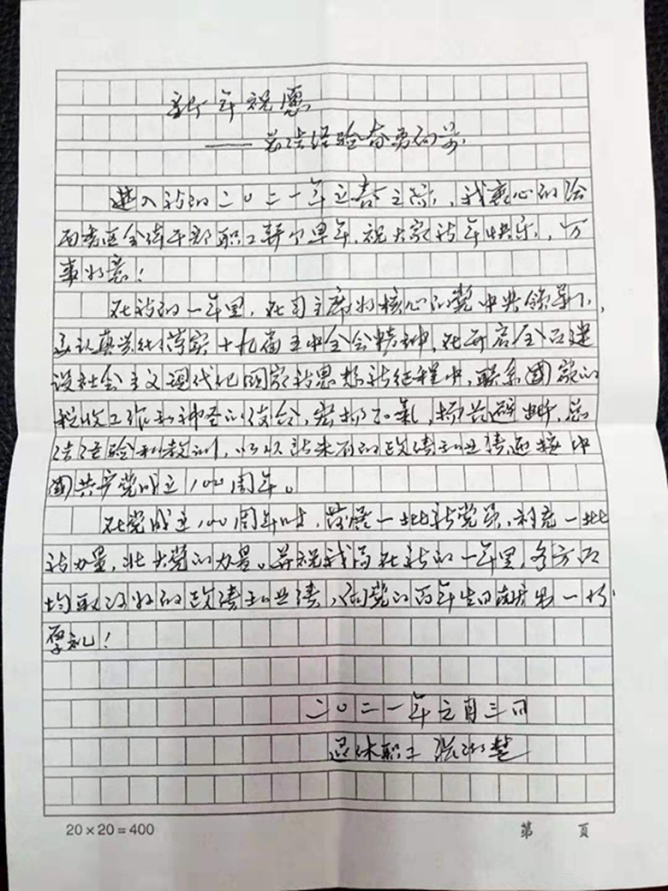 新年祝愿
——总结经验奋勇向前
进入新的二〇二一年之春之际，我衷心的给
全体干部职工拜个早年，祝大家新年快乐，万
事如意！
在新的一年里，在习主席为核心的党中央领导下，
认真学习落实十九届五中全会精神，在开启全面建
设社会主义现代化国家新思想新征程中，联系国家的
税收工作和神圣的使命，宏扬正气，扬善避邪，总
结经验和教训，以以新来的政绩和业绩迎接中
國共产党成立100周年。
在党成立100周年时，发展一批新党员，补充一批
新力量，壮大党的力量。并祝我局在新的一年里，各方面
均取得好的政绩和业绩，向党的百年生日献出一份
厚礼！
二〇二一年元月三日
退休职工 张
20×20=400
第 页